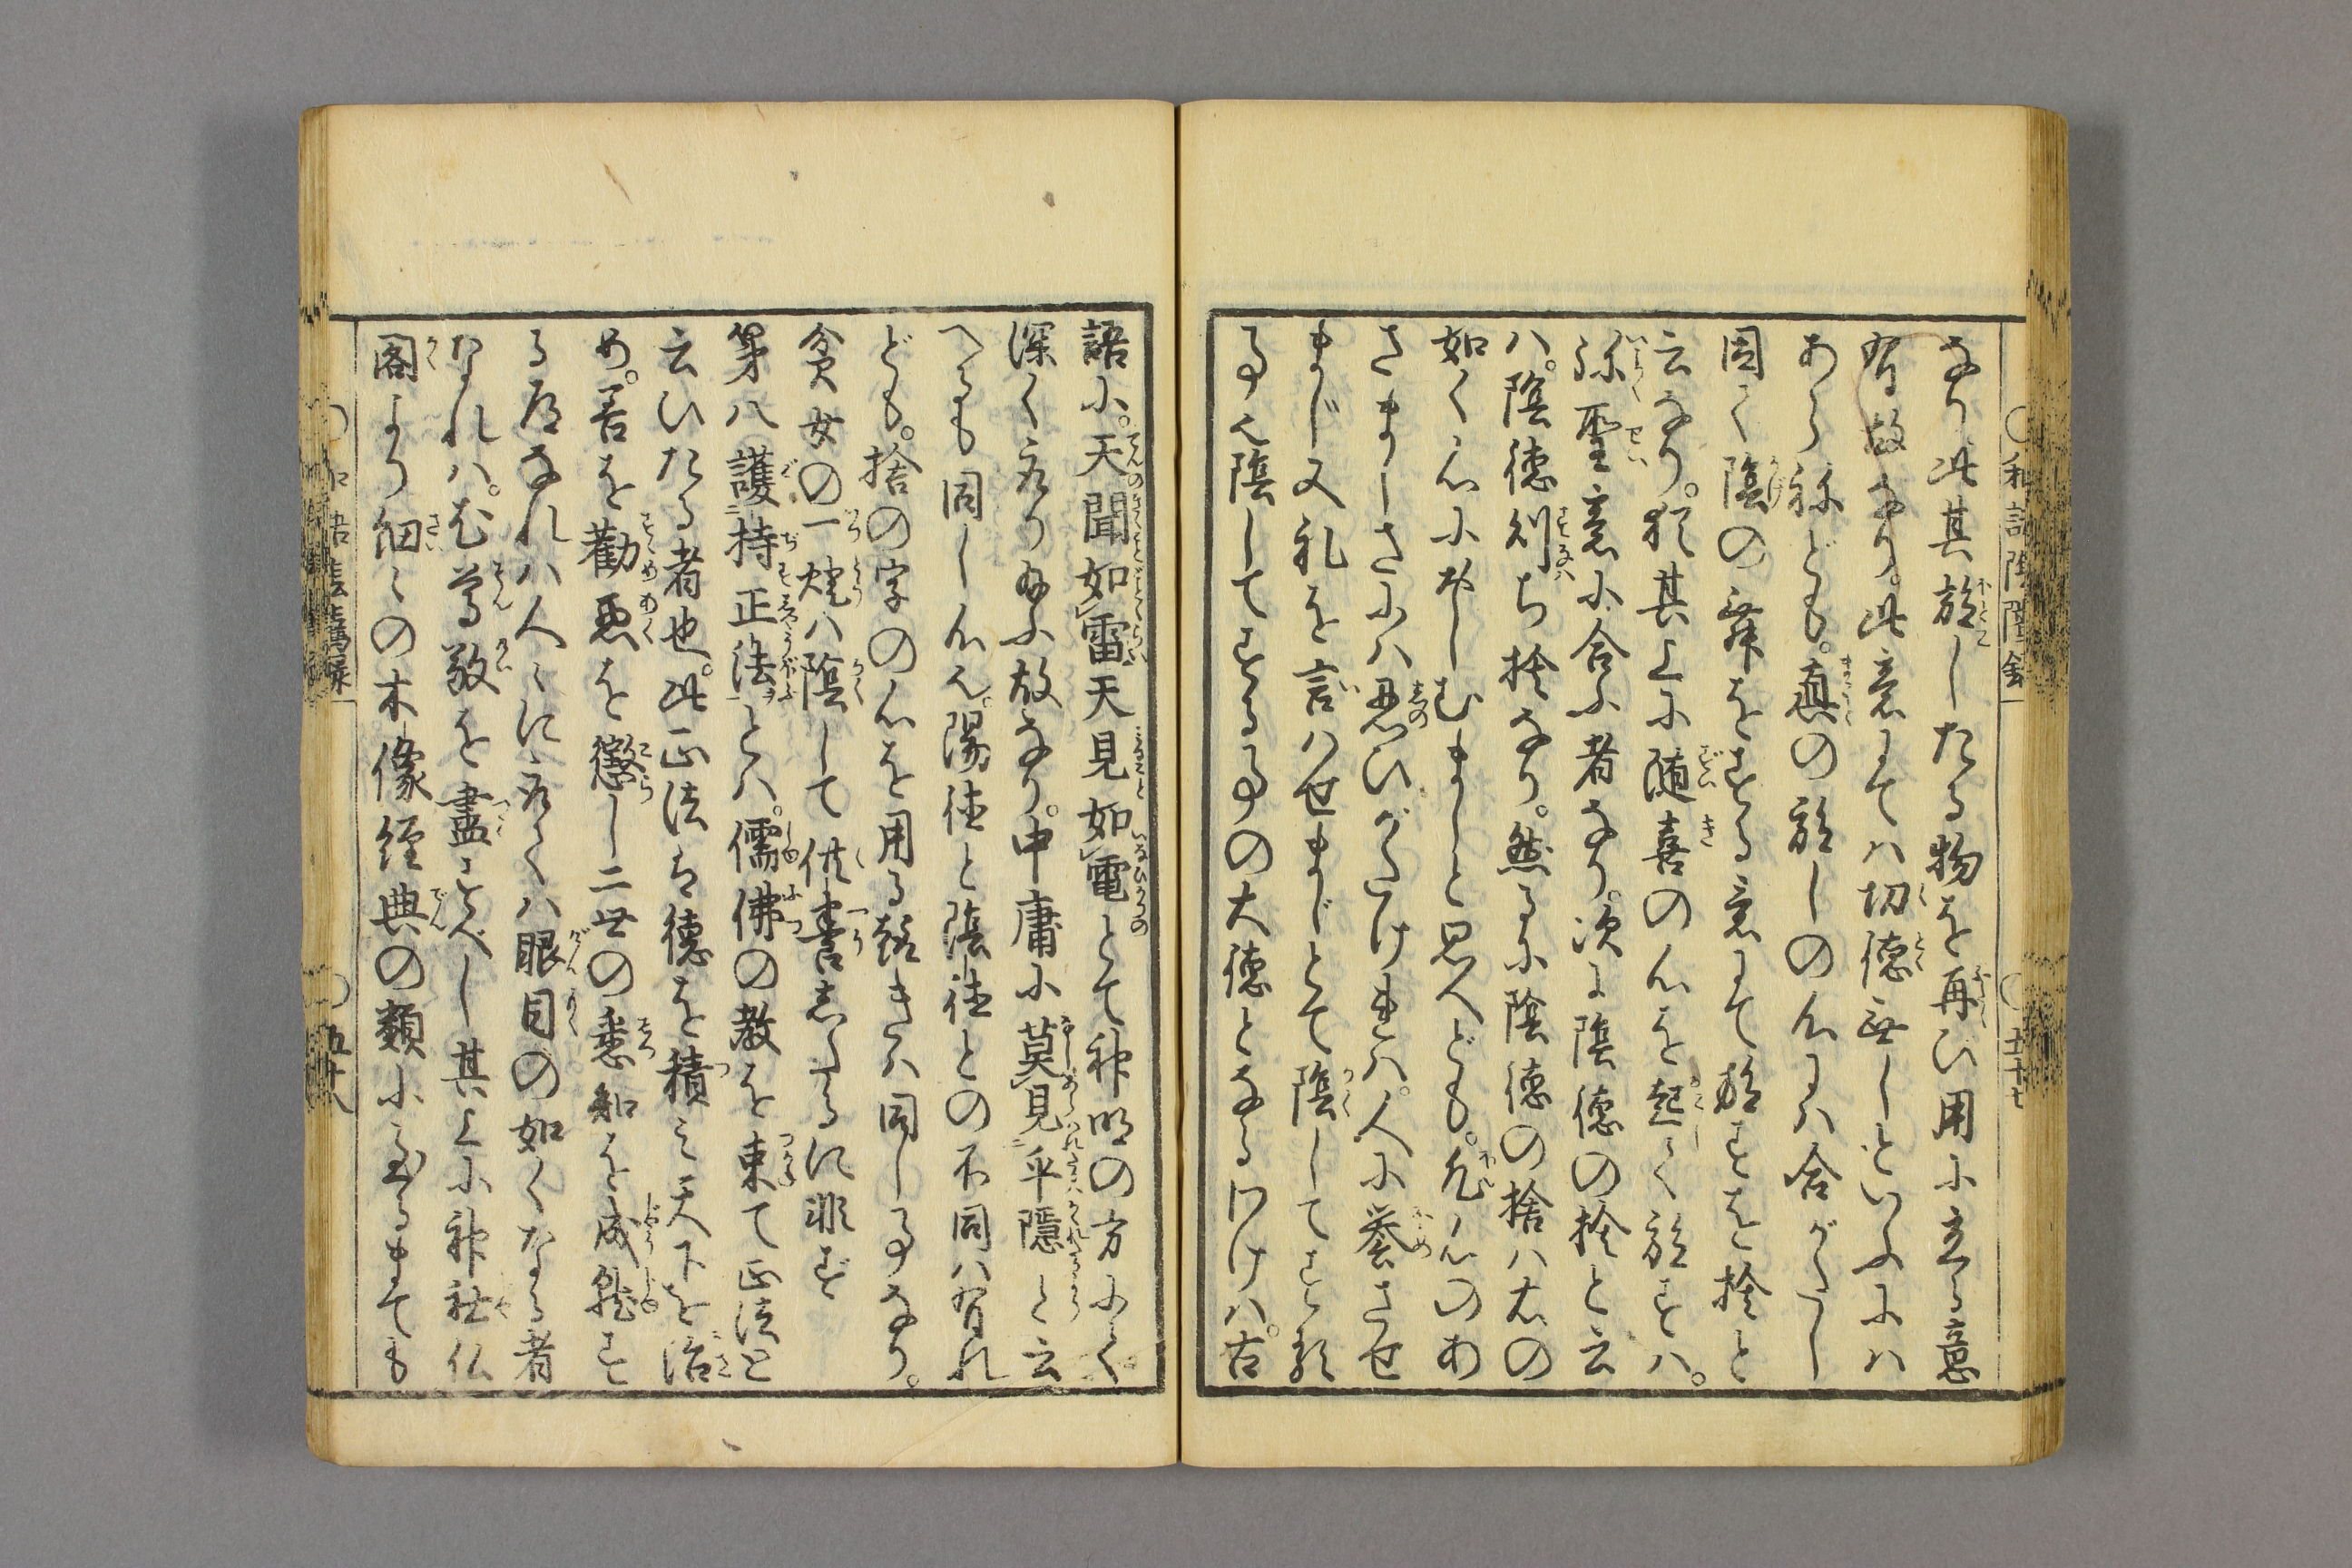 なり此其施したる物を再ひ用に立る意
有故なり。此意にては功徳無しといふには
あらねども。真の施しの心には合がたし
因て陰の舜をする意にて施すを捨と
云なり。猶其上に随喜の心を起して施すは。
弥聖意に合ふ者なり。次に陰徳の捨と云
は。陰徳則ち捨なり。然るに陰徳の捨は右の
如く心におしむましと思へども。凡心のあ
さましさには思いがたければ。人に誉させ
まじ又礼を言はせまじとて陰してすれ
る事を陰してする事の大徳となるわけは。古
語に。天聞如雷天見如電とて神明の方にて
深く知り給ふ故なり。中庸に莫見乎隠と云
へるも同し心也。陽徳と陰徳との不同は有れ
ども。捨の字の心を用る趣きは同し事なり。
貧女の一燈は陰して供養したるに非ず
第八護持正法とは。儒佛の教を束て正法と
云ひたる者也。此正法は徳を積み天下を治
め。善を勧悪を懲し二世の悉知を成就す
る道なれは人々に取ては眼目の如くなる者
なれは。尤尊敬を尽すべし其上に神社仏
閣より細々の木像経典の類に至るまても
和語陰隲録
五十七
五十八